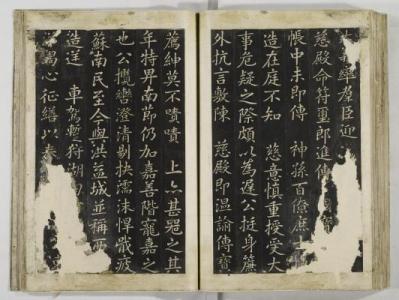 率羣臣迎
慈殿命符璽郎進傳
帳中未即傳 神孫百僚庶士
造在庭不知 慈意慎重授受大
事危疑之際頗以為遲公挺身簾
外抗言敷陳 慈殿即溫諭傳寶
薦紳莫不嘖嘖 上亦甚器之其
年特畀南節仍加嘉善階寵嘉之
也公攬轡澄清剔抉濡沫悍戢疲
蘇南民至今與洪益城並稱西
造 車駕暫狩湖
竭心征繕以奉